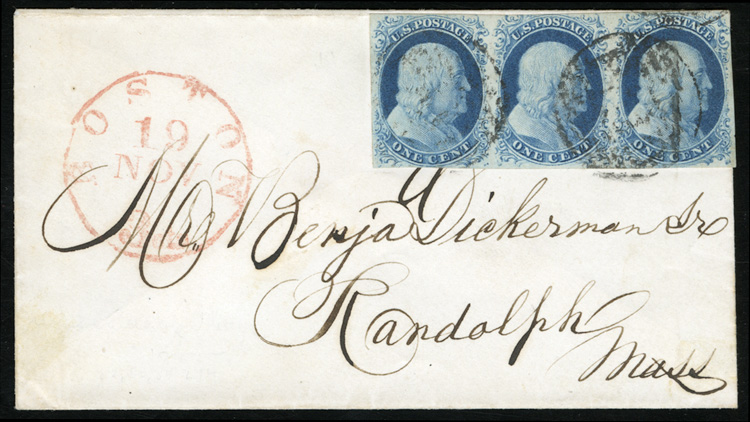 U.S. POSTAGE U.S. POSTAGE U.S. POSTAGE
ONE CENT ONE CENT ONE CENT
BOSTON
19
NOV
Mr. Benja Dickerman Jr
Randolph
Mass